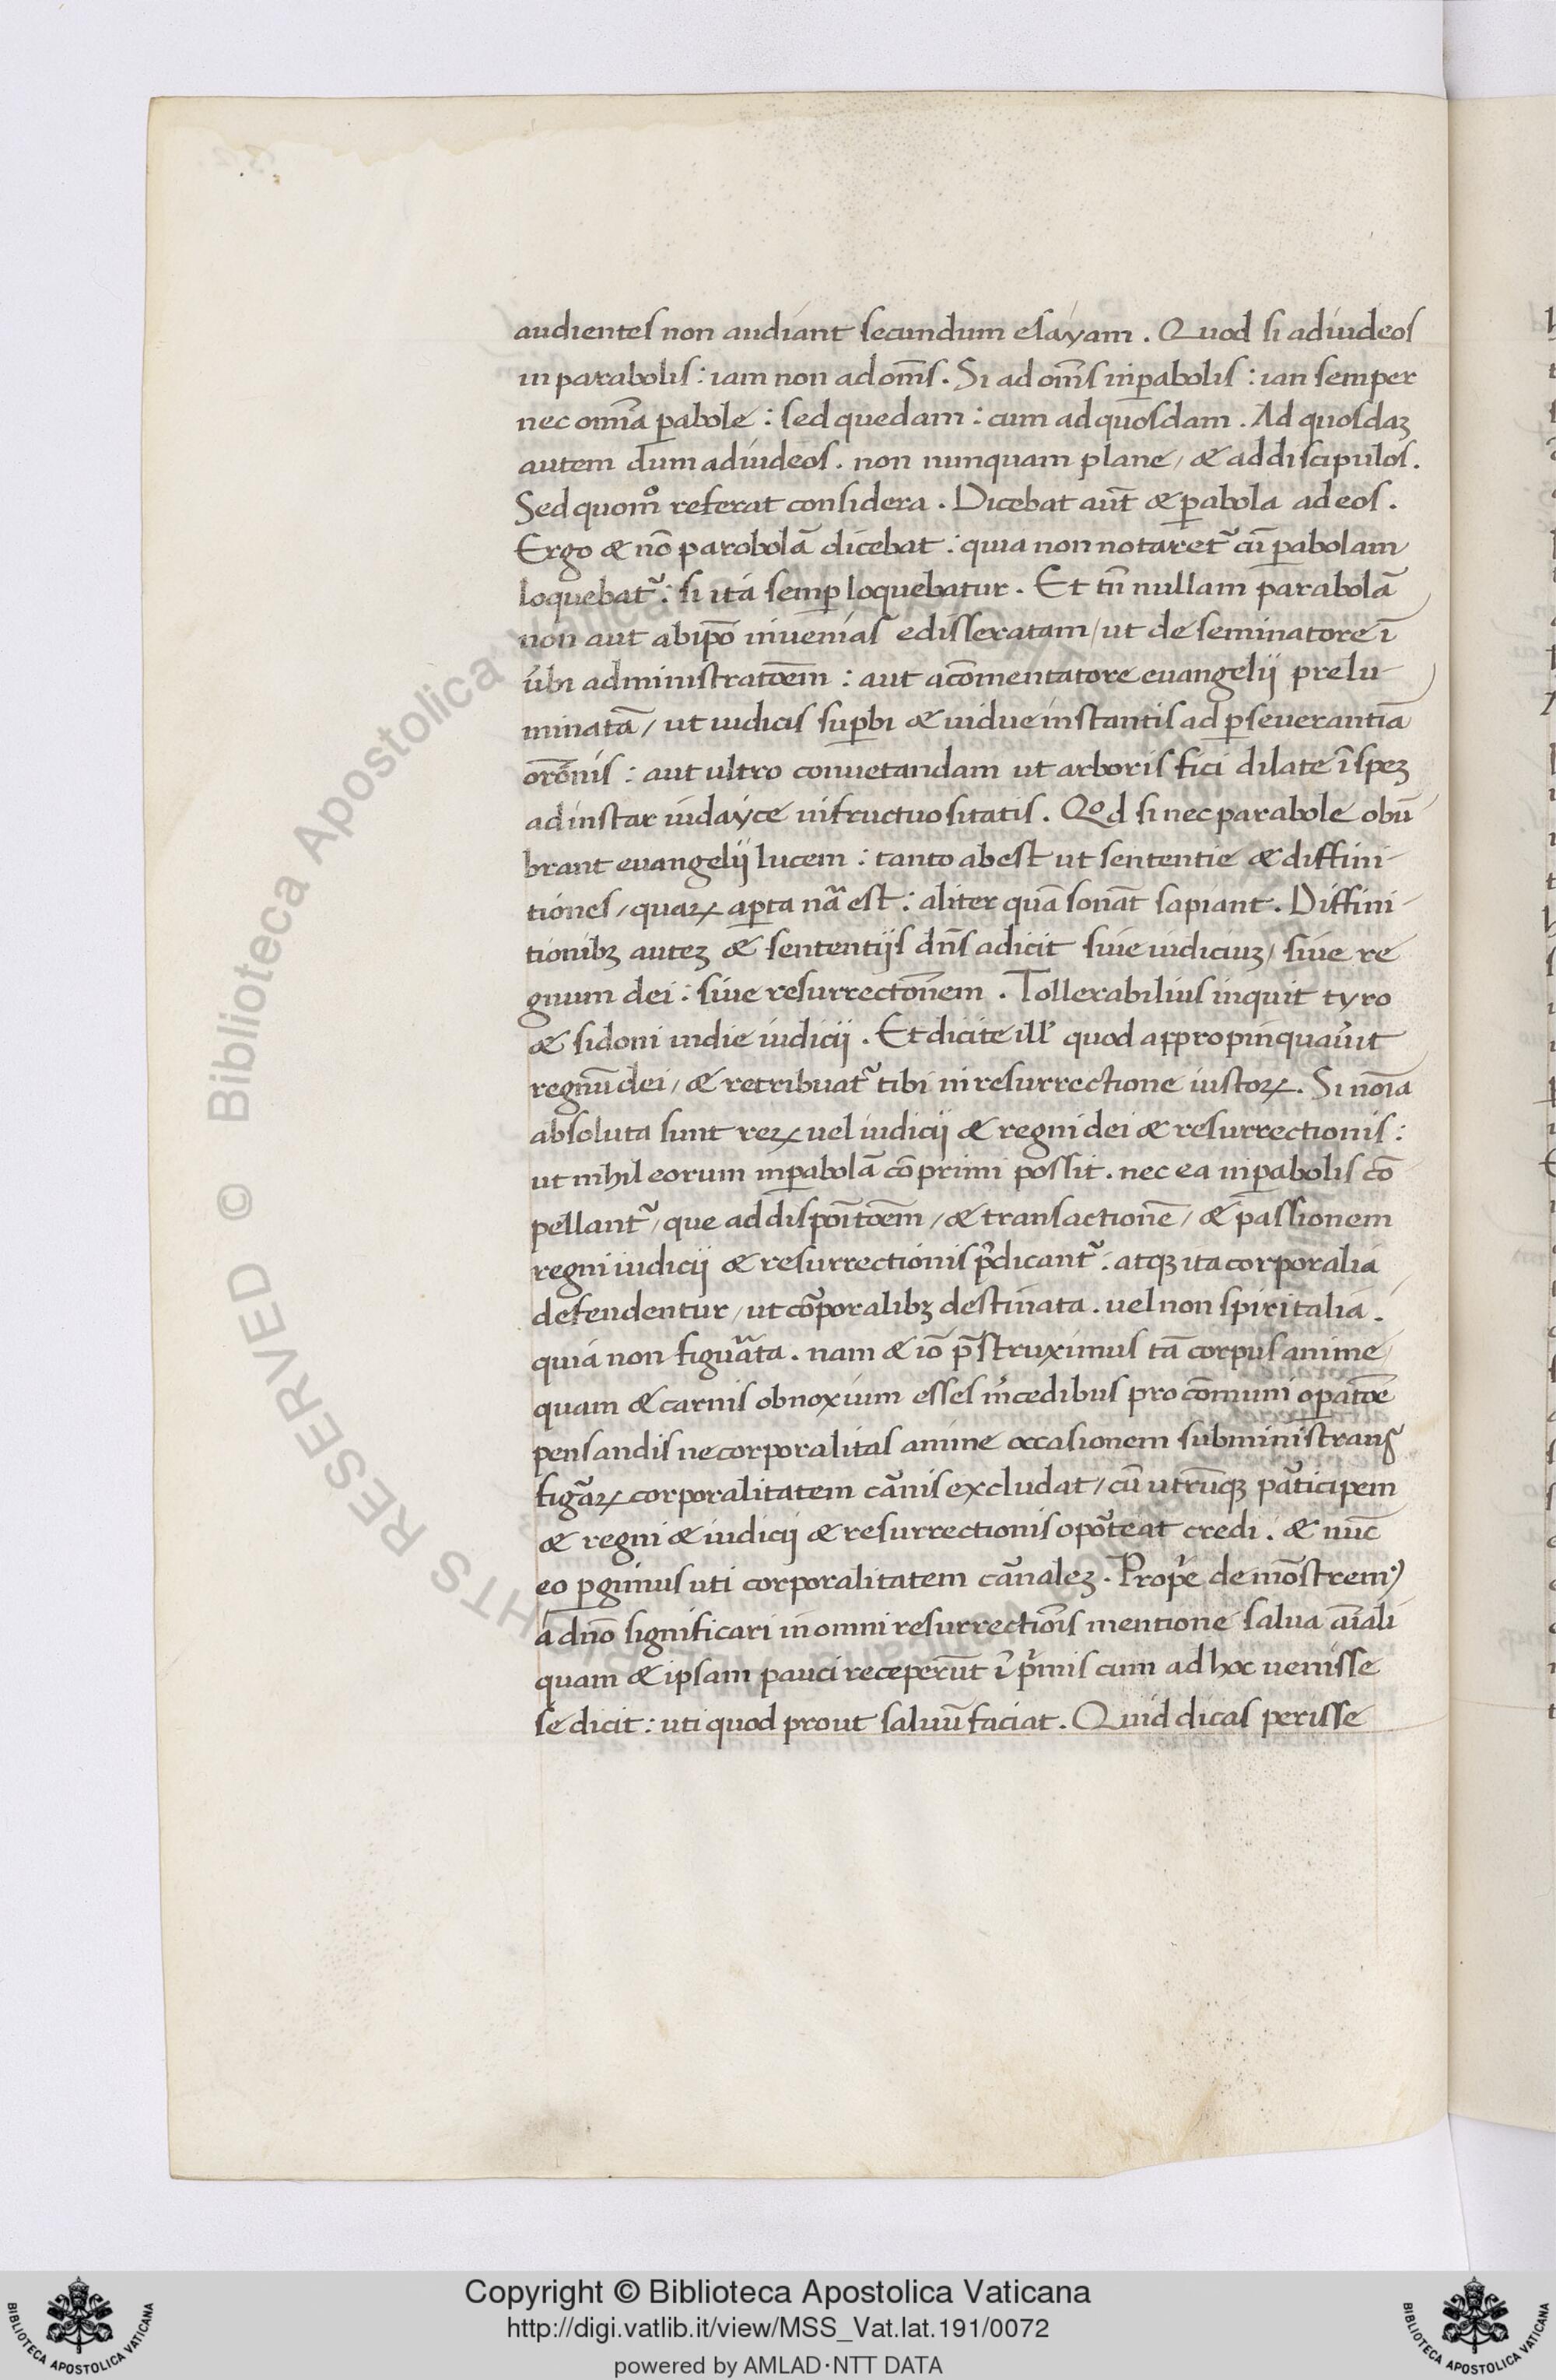 audientes non audiant secundum esayam. Quod si ad iudeos
in parabolis: iam non ad om̄s. Si ad om̄s in ꝑabolis: ian semper
nec omīa ꝑabole: sed quedam: cum ad quosdam. Ad quosdaꝫ
autem dum ad iudeos. non nunquam plane/ & ad discipulos.
Sed quom̊ referat considera. Dicebat aut̄ & ꝑabola ad eos.
Ergo & nō parobolā dicebat: quia non notaret᷑ cū ꝑabolam
loquebat᷑: si ita semꝑ loquebatur. Et tn̄ nullam parabolā
non aut ab ip̄o invenias edisseratam/ ut de seminatore ī
u̓bi administratōem: aut a cōmentatore euangelij prelu-
minatā/ ut iudicis suꝑbi & uidue instantis ad ꝑseuerantiā
orōnis: aut ultro conuetandam ut arboris fici dilate ī speꝫ
ad instar iudayce infructuositatis. Qd̊ si nec parabole obū
brant euangelij lucem: tanto abest ut sententie & diffini-
tiones/ quaꝝ aꝑta nā est: aliter quā sonāt sapiant. Diffini-
tionibꝫ auteꝫ & sententijs dn̄s adicit siue iudiciuꝫ/ siue re
gnum dei: siue resurrectōnem. Tollerabilius inquit tyro
& sidoni in die iudicij. Et dicite ill̓ quod appropinquau̓it
regnū dei/ & retribuat᷑ tibi in resurrectione iustoꝝ. Si noīa
absoluta sunt reꝝ uel iudicij & regni dei & resurrectionis:
ut nihil eorum in ꝑabolā cōprimi possit. nec ea in ꝑabolis cō
pellant᷑/ que ad dispoītōem/ & transactionē/ & passionem
regni iudicij & resurrectionis p̓dicant᷑. atqꝫ ita corporalia
defendentur/ ut cōꝑoralibꝫ destinata. uel non spiritalia.
quia non figuᷓata. nam & iō p̄struximus tā corpus anime
quam & carnis obnoxium esses m̓cedibus pro cōmuni oꝑatōe
pensandis ne corporalitas anime occasionem subministrans
figᷓaꝝ corporalitatem cᷓanis excludat/ cū utrūqꝫ pᷓaticipem
& regni & iudicij & resurrectionis opōteat credi. & nūc
eo ꝑgimus uti corporalitatem cᷓanaleꝫ. Prop̓e demōstrem᷒
a dn̄o significari in omni resurrectiōis mentione salua aīali
quam & ipsam pauci receper̄ut ī p̓mis cum ad hoc uenisse
se dicit: uti quod prout saluū faciat. Quid dicas perisse
© Biblioteca Apostolica Vaticana
RIGHTS RESERVED
Copyright © Biblioteca Apostolica Vaticana
http://digi.vatlib.it/view/MSS_Vat.lat.191/0072
powered by AMLAD·NTT DATA
BIBLIOTECA APOSTOLICA VATICANA
BIBLIOTECA APOSTOLICA VATICANA